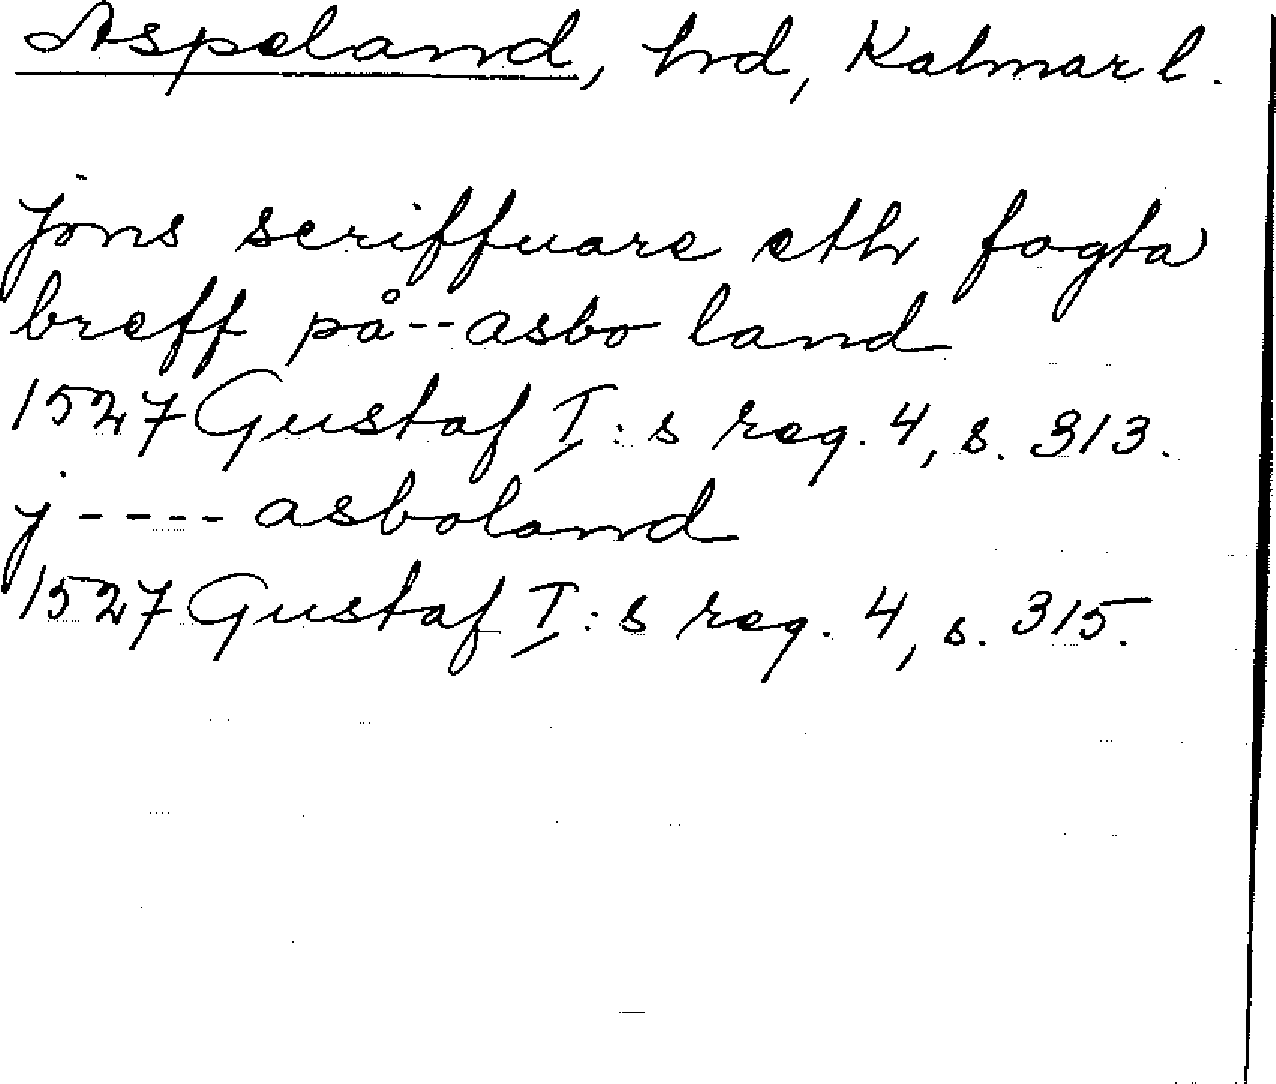 Aspeland, hrd, Kalmar l.
Jöns scriffuare eth fogta
breff på -- asbo land
1527 Gustaf I:s reg. 4, s. 313.
j ---- asboland
1527 Gustaf I:s reg. 4, s. 315.